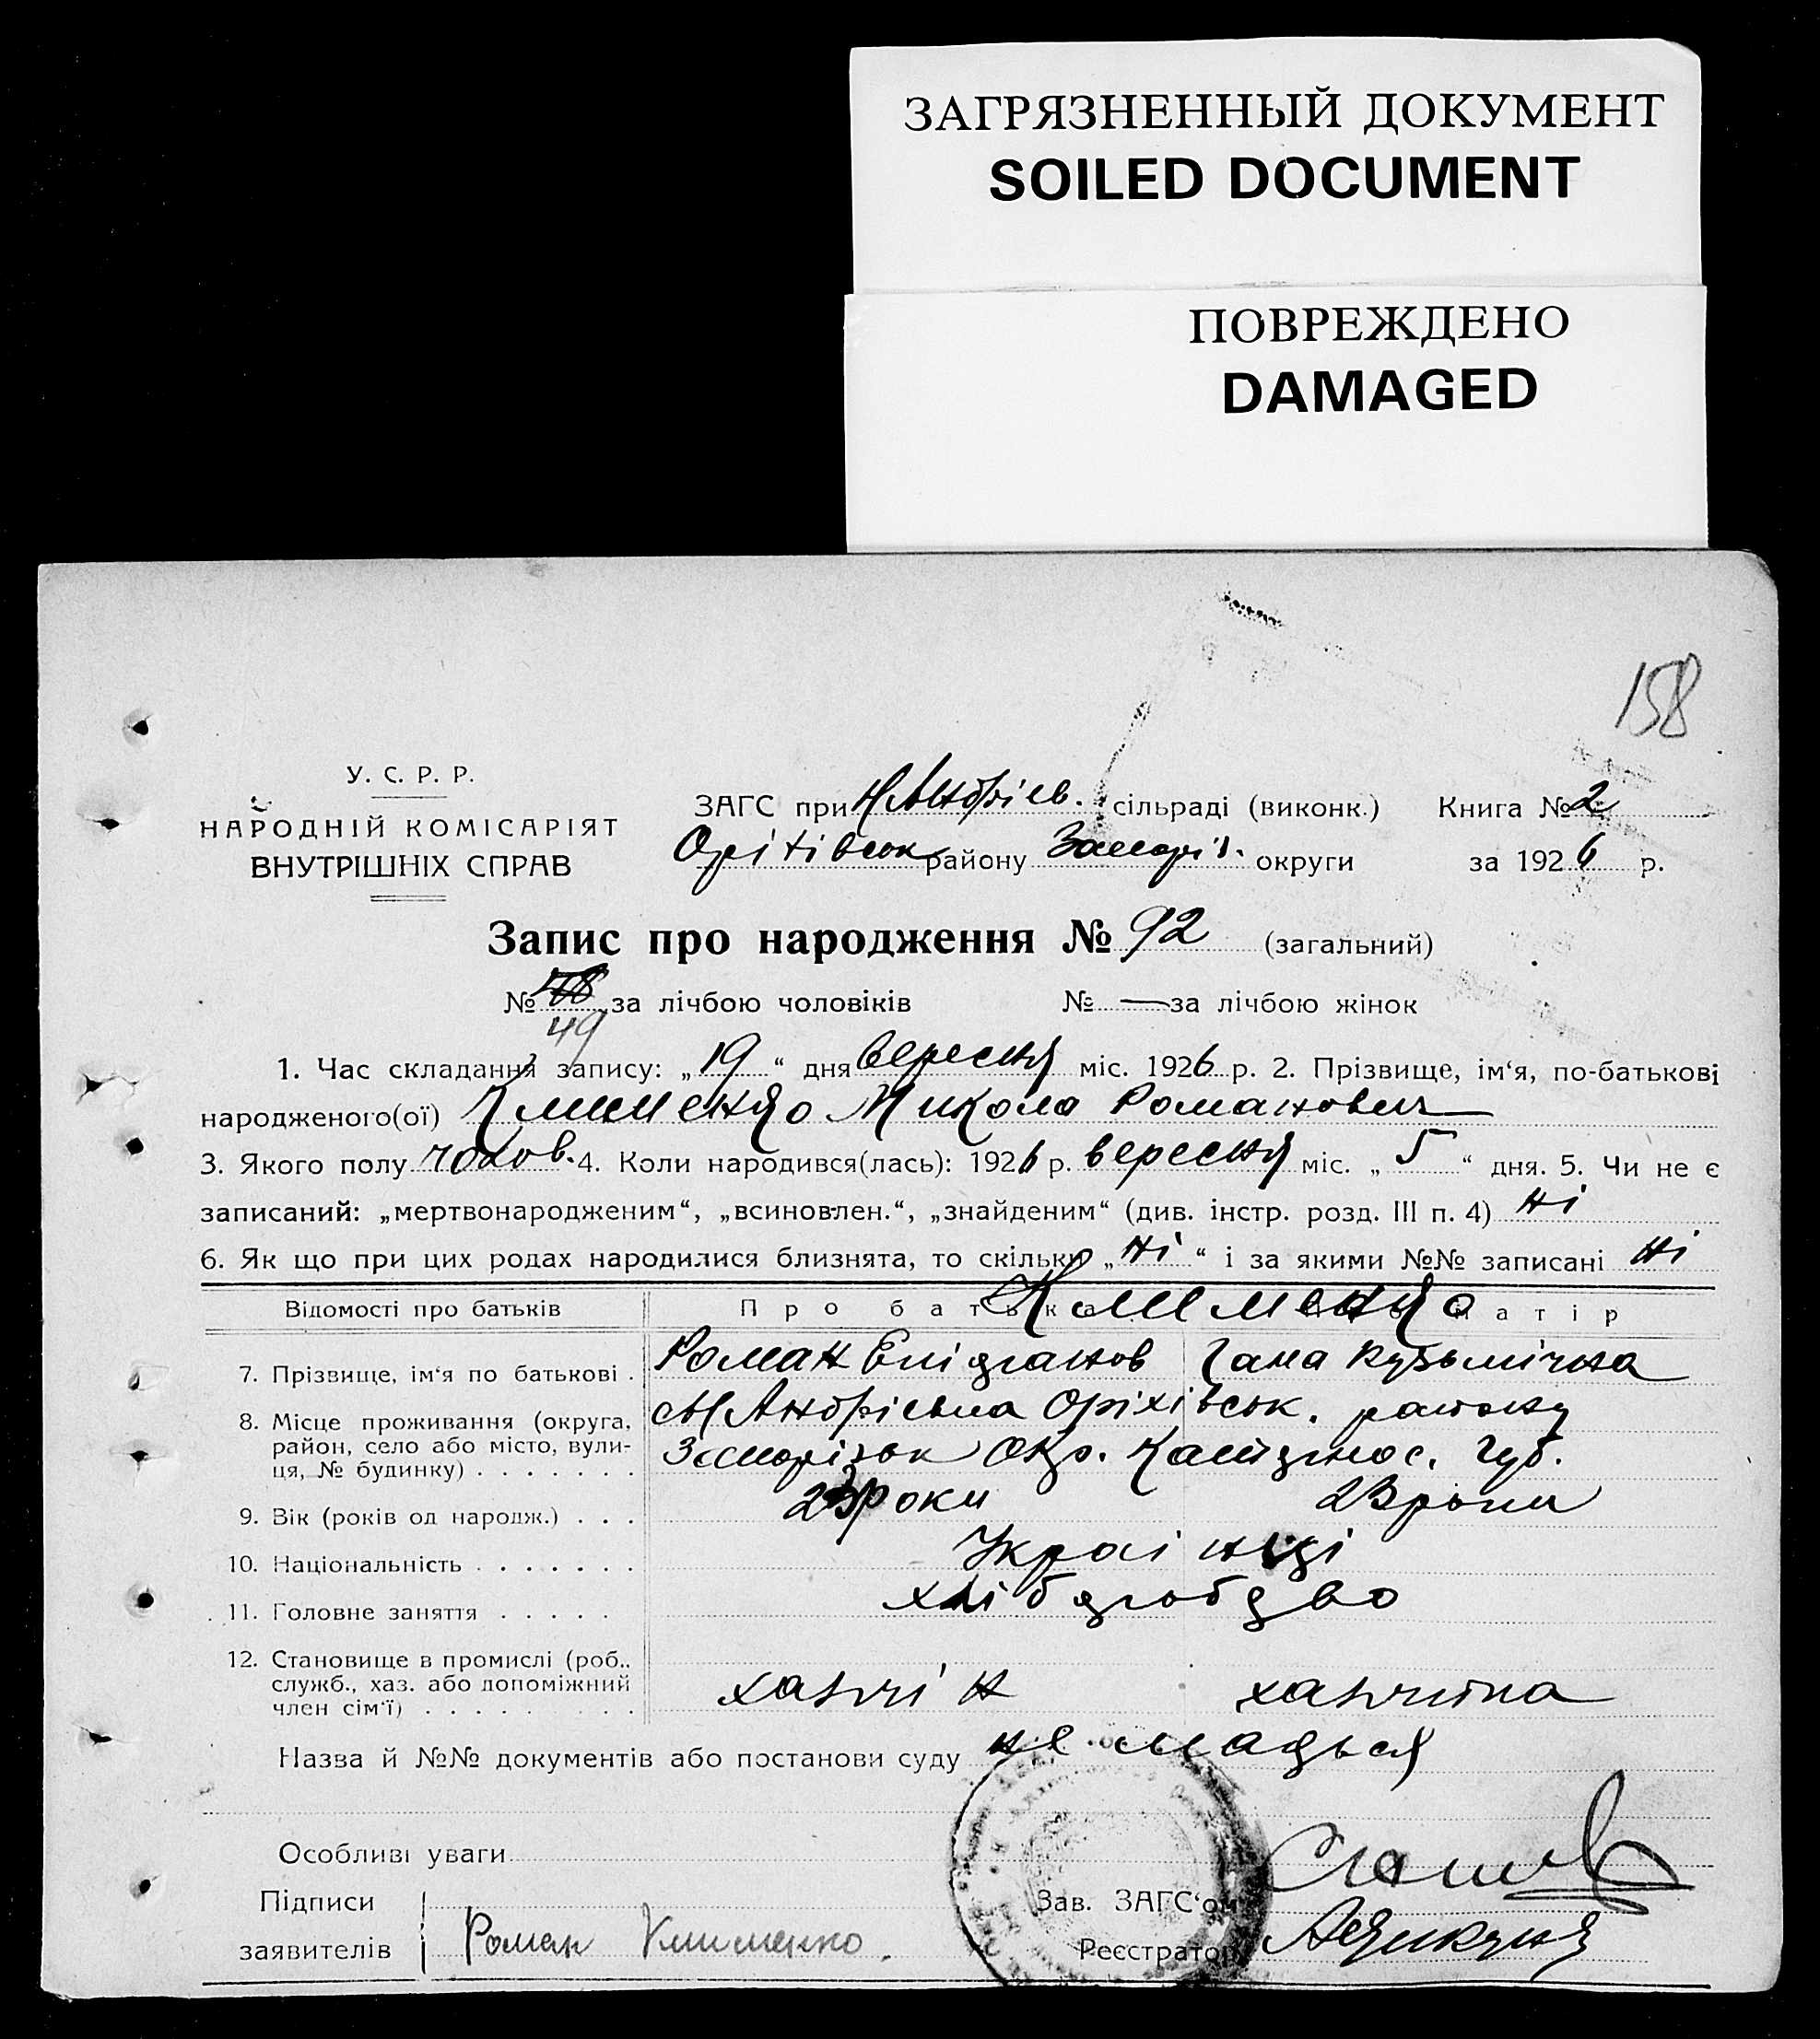 ЗАГРЯЗНЕННЫЙ ДОКУМЕНТ
SOILED DOCUMENT
ПОВРЕЖДЕНО
DAMAGED
158
У. С. Р. Р.
НАРОДНІЙ КОМІСАРІЯТ
ВНУТРІШНІХ СПРАВ
ЗАГС при Н Андрієв. сільраді (виконк.) Книга № 2
Оріхівськ району Запоріз. округи за 1926 р.
Запис про народження № 92 (загальний)
№ 48 за лічбою чоловіків № — за лічбою жінок
49
1. Час складання запису: „19“ дня вересня міс. 1926 р. 2. Прізвище, ім‘я, по-батькові
народженого(ої) Клименко Микола Романович
3. Якого полу чолов. 4. Коли народився(лась): 1926 р. вересня міс. „5“ дня. 5. Чи не є
записаний: „мертвонародженим“, „всиновлен.“, „знайденим“ (див. інстр. розд. III п. 4) ні
6. Як що при цих родах народилися близнята, то скільки „ні“ і за якими №№ записані ні
Відомості про батьків Про батька Клименко матір
7. Прізвище, ім‘я по батькові . Роман Епіфанов Гана Кузьмічна
8. Місце проживання (округа, район, село або місто, вулиця, № будинку) . . . . . . . Н Андрієвка Оріхівськ. району
Запорізьк Окр. Катериносл. Губ.
9. Вік (років од народж.) . . . 23 роки 23 роки
10. Національність . . . . . . . Украінці
11. Головне заняття . . . . . хліборобство
12. Становище в промислі (роб.. служб., хаз. або допоміжний член сім‘ї) . . . . . . . . . хазяїн хазяйка
Назва й №№ документів або постанови суду не мадься
Особливі уваги
Підписи Зав. ЗАГС‘ом
заявителів Роман Клименко. Реєстратор